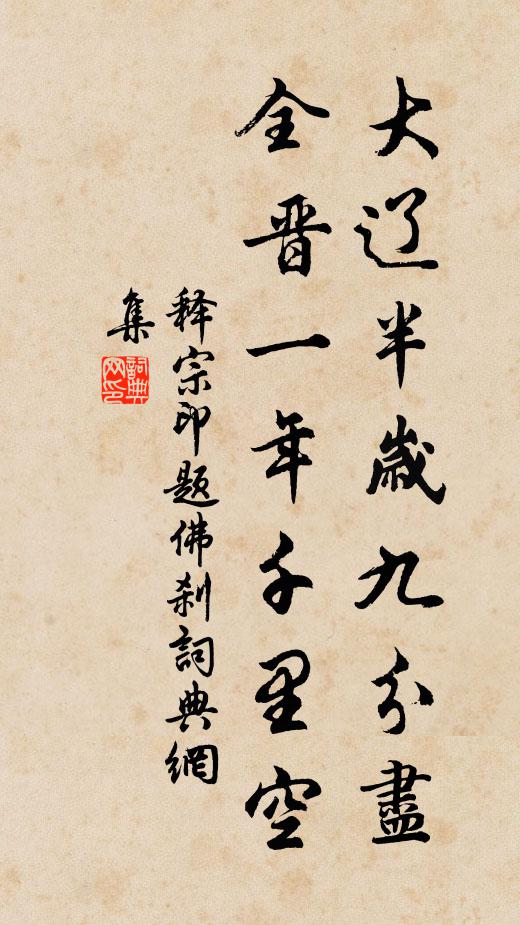 大辽半歲九分盡
全晋一年千里空
释宗印題佛刹詞典網
集
詞典网印